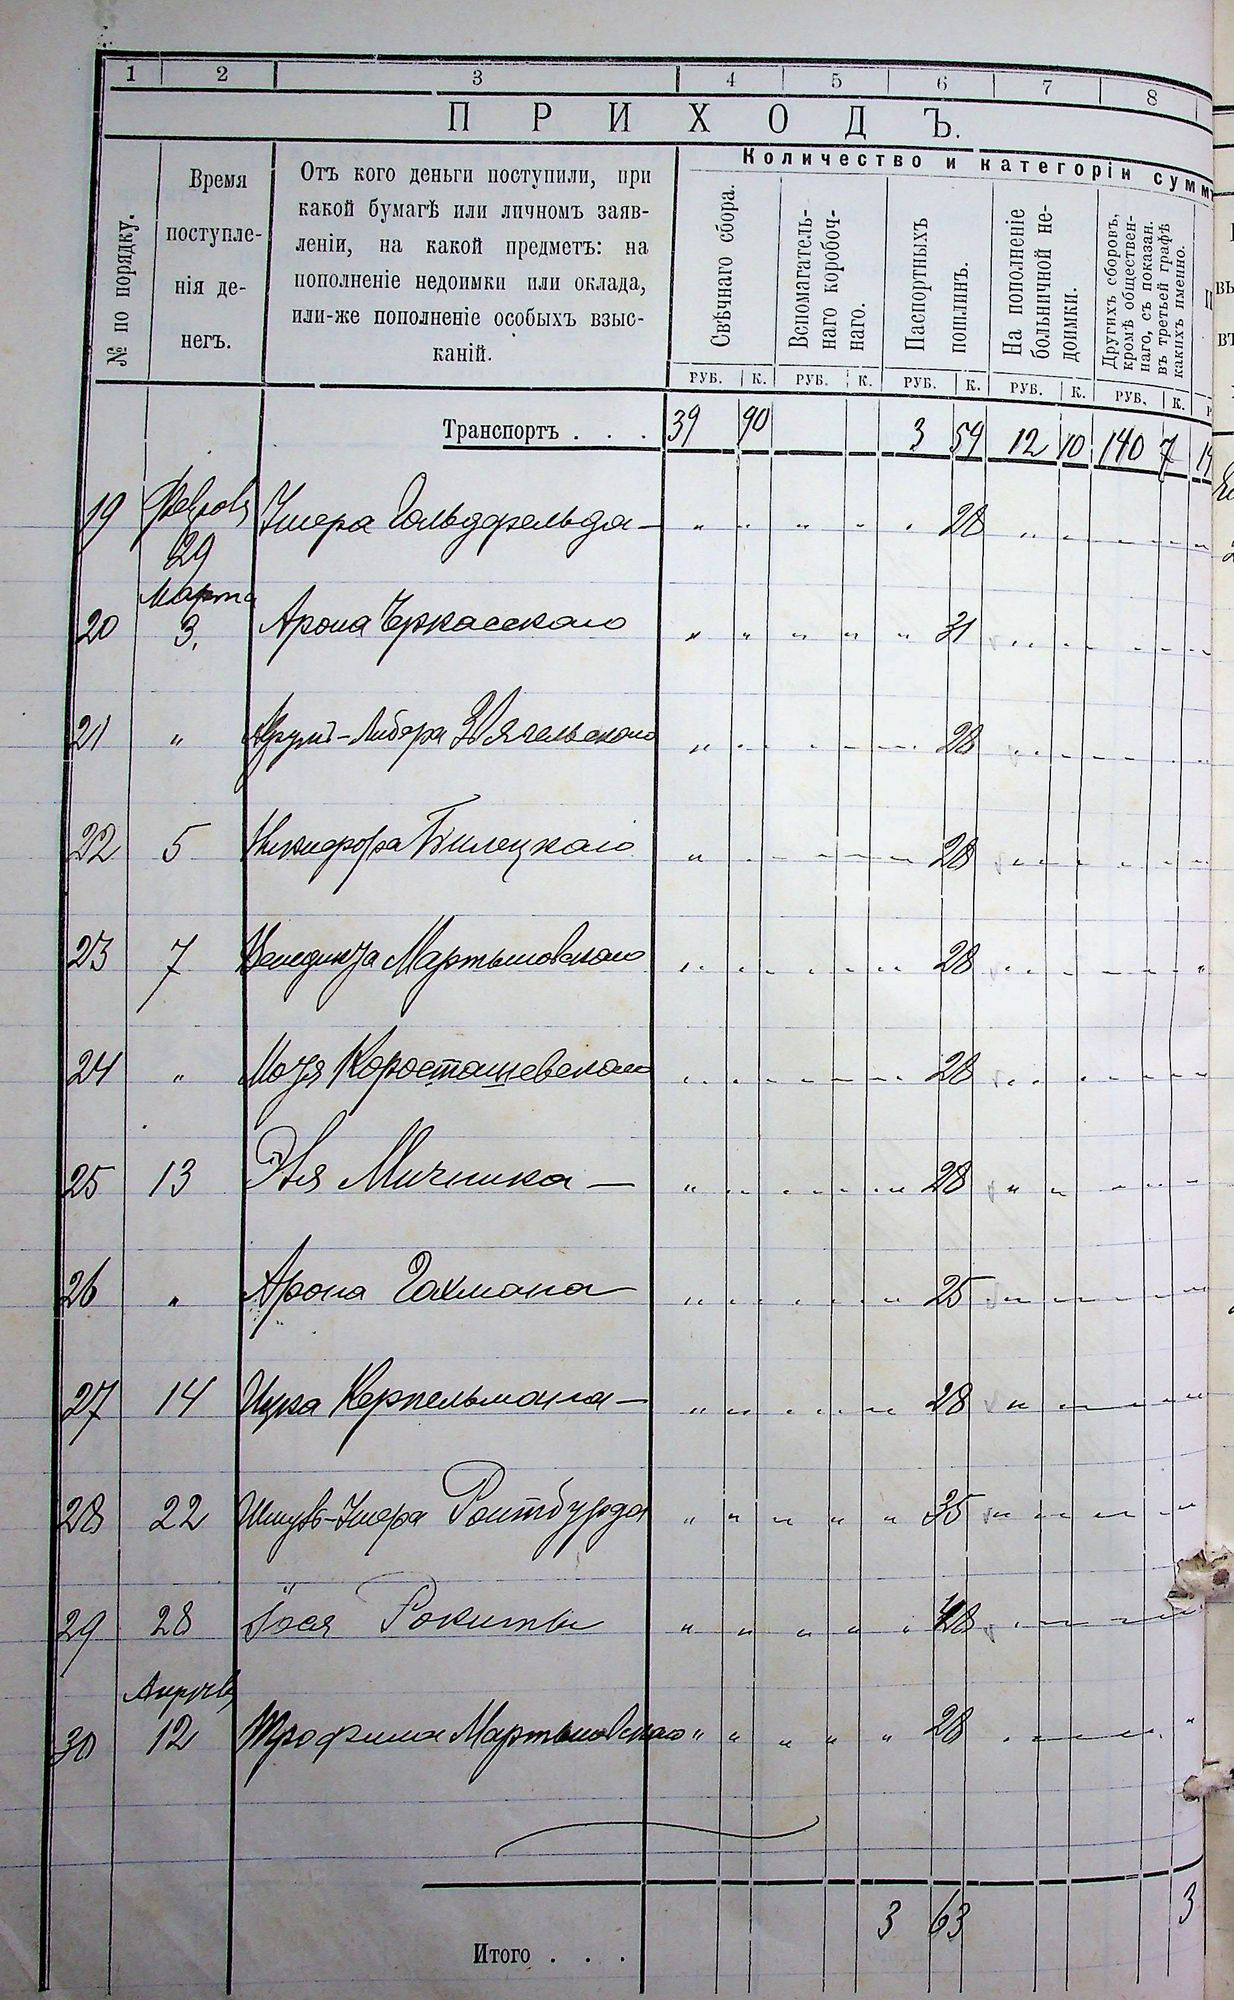 1 2 3 4 5 6 7 8
ПРИХОДЪ.
№ по порядку.
Время
поступле-
нія де-
негъ.
Отъ кого деньги поступили, при
какой бумагѣ или личномъ заяв-
леніи, на какой предметъ: на
пополненіе недоимки или оклада,
или-же пополненіе особыхъ взыс-
каній.
Количество и категоріи сумм
Свѣчнаго сбора.
Вспомагатель-
наго коробоч-
наго.
Паспортныхъ
пошлинъ.
На пополненіе
больничной не-
доимки.
Другихъ сборовъ,
кромѣ обществен-
наго, съ показан.
въ третьей графѣ
какихъ именно.
РУБ. К. РУБ. К. РУБ. К. РУБ. К. РУБ. К.
Транспортъ . . . 39 90 3 59 12 10 140 7
19 Февраля Ушера Гольдфельда — " " " " " 28
29
Марта
20 3. Арона Черкасскаго " " " " " 31
21 " Звягельскаго " 28
22 5 Никифора Билецкаго " 28
23 7 Мартыновскаго 28
24 " Коросташевскаго 28
25 13 Эля Мичника — " 28
26 " Арона Гахмана 25
27 14 Ицка Керпельмана — " 28
28 22 Шмуль-Ушера Ройтбурда " " " " " 35
29 28 Іося Рокиты " " " " " 28
Апрѣля
30 12 Трофима Мартыновскаго " " " " " 28
3 63 3
Итого . . .